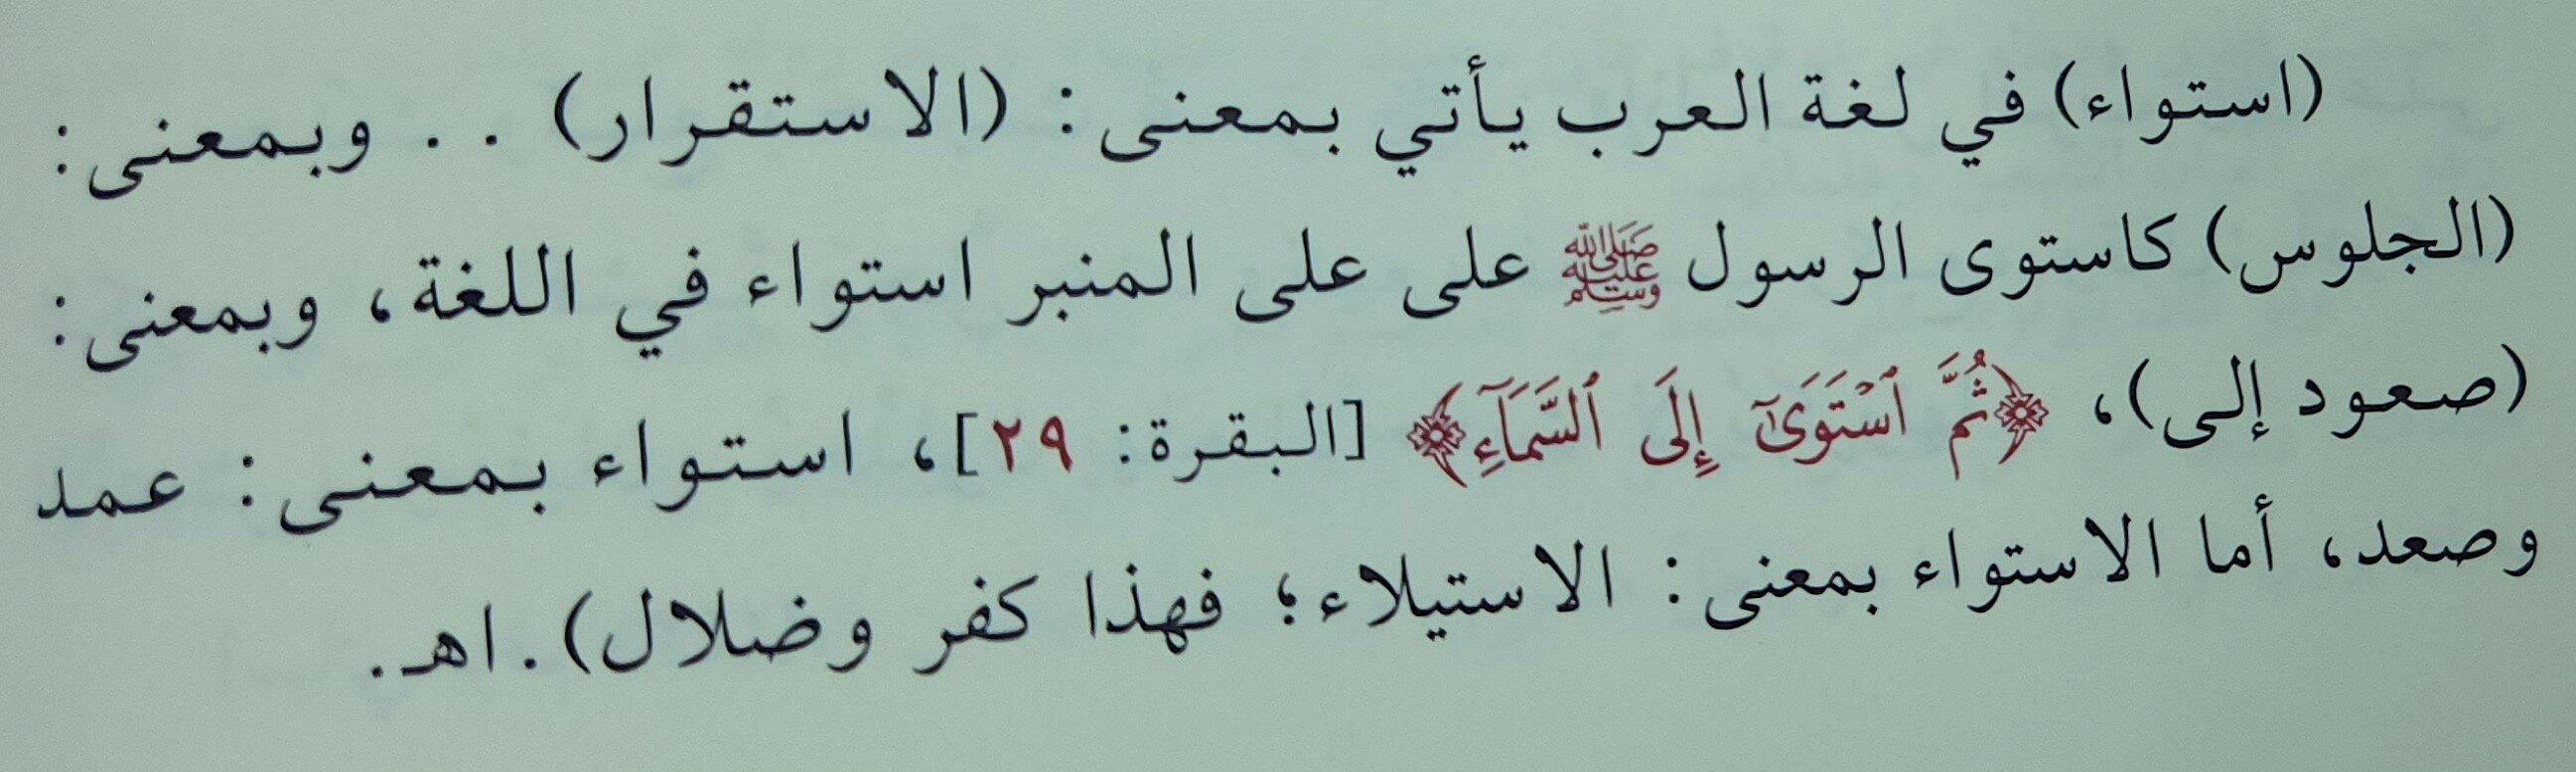 (استواء) في لغة العرب يأتي بمعنى: (الاستقرار) . . وبمعنى:
(الجلوس) كاستوى الرسول ﷺ على على المنبر استواء في اللغة، وبمعنى:
(صعود إلى)، ﴿ثُمَّ ٱسْتَوَىٰٓ إِلَى ٱلسَّمَآءِ﴾ [البقرة: ٢٩]، استواء بمعنى: عمد
وصعد، أما الاستواء بمعنى: الاستيلاء؛ فهذا كفر وضلال). اهـ.